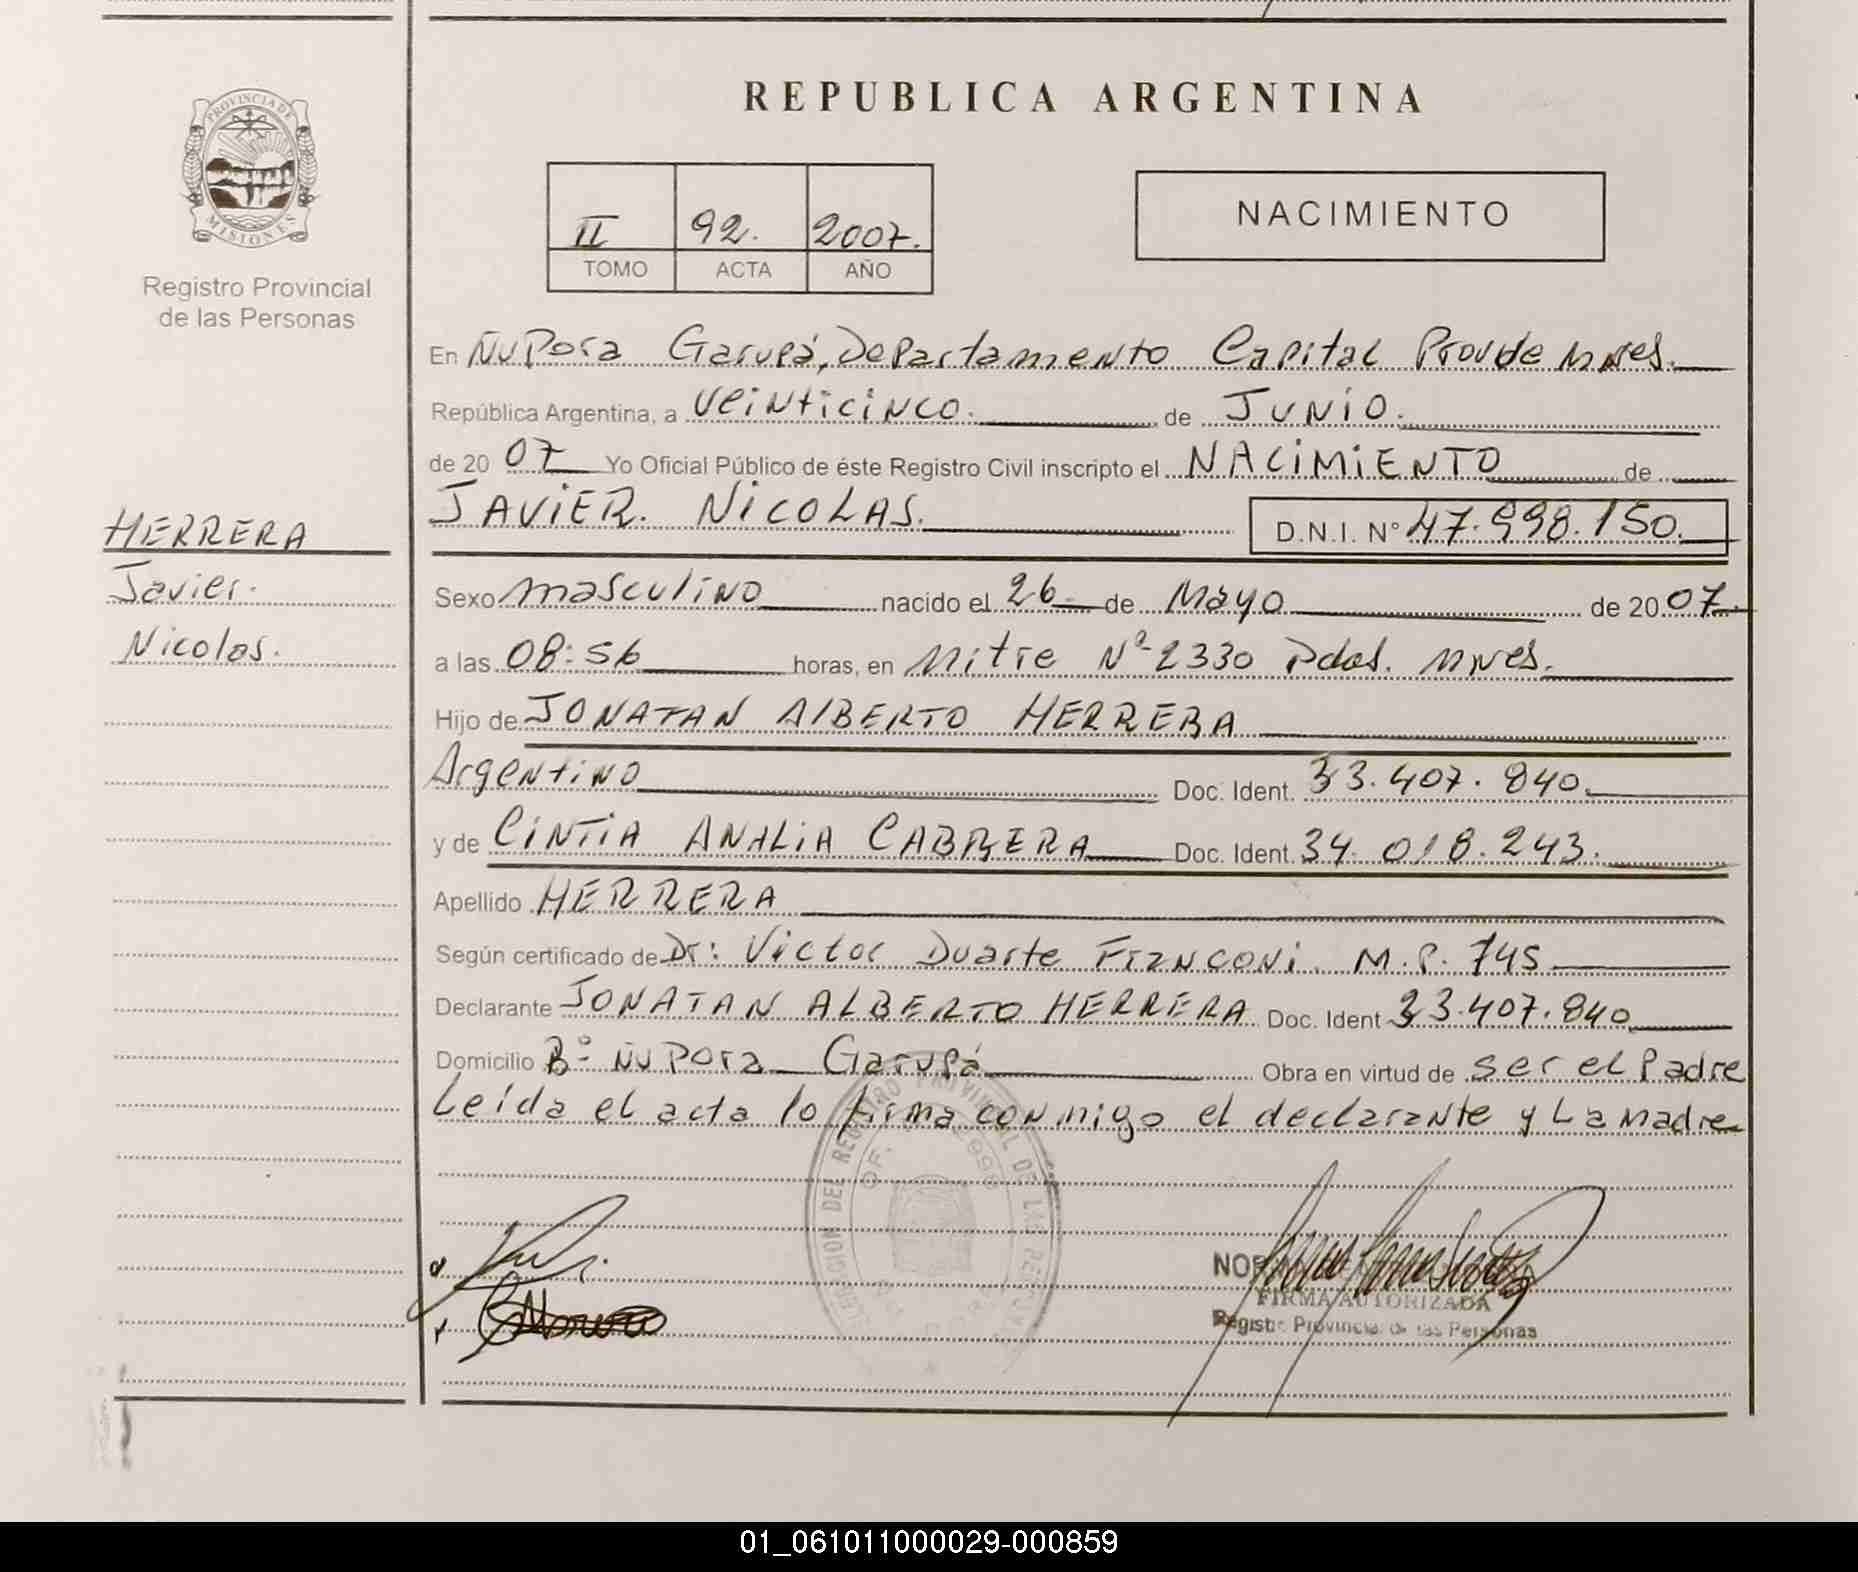 REPUBLICA ARGENTINA
PROVINCIA DE
MISIONES
Registro Provincial
de las Personas
II 92. 2007.
TOMO ACTA AÑO
NACIMIENTO
En ÑuPora Garupá, Departamento Capital Prov de Mnes.
República Argentina, a veinticinco. de Junio.
de 20 07 Yo Oficial Público de éste Registro Civil inscripto el NACIMIENTO de
JAVIER. NICOLAS. D.N.I. N° 47.998.150.
HERRERA
Javier.
Nicolas.
Sexo masculino nacido el 26 de Mayo de 20 07.
a las 08:56 horas, en Mitre Nº 2330 Pdas. Mnes.
Hijo de JONATAN ALBERTO HERRERA
Argentino Doc. Ident. 33.407.840.
y de CINTIA ANALIA CABRERA Doc. Ident. 34.018.243.
Apellido HERRERA
Según certificado de Dr: Victor Duarte Franconi. M.P. 745
Declarante JONATAN ALBERTO HERRERA Doc. Ident 33.407.840
Domicilio Bº ÑuPora Garupá Obra en virtud de ser el Padre
Leída el acta lo firma conmigo el declarante y La Madre
DEL REGISTRO PROVINCIAL DE LAS
OF. 2998
FIRMA AUTORIZADA
Registro Provincial de las Personas
01_061011000029-000859